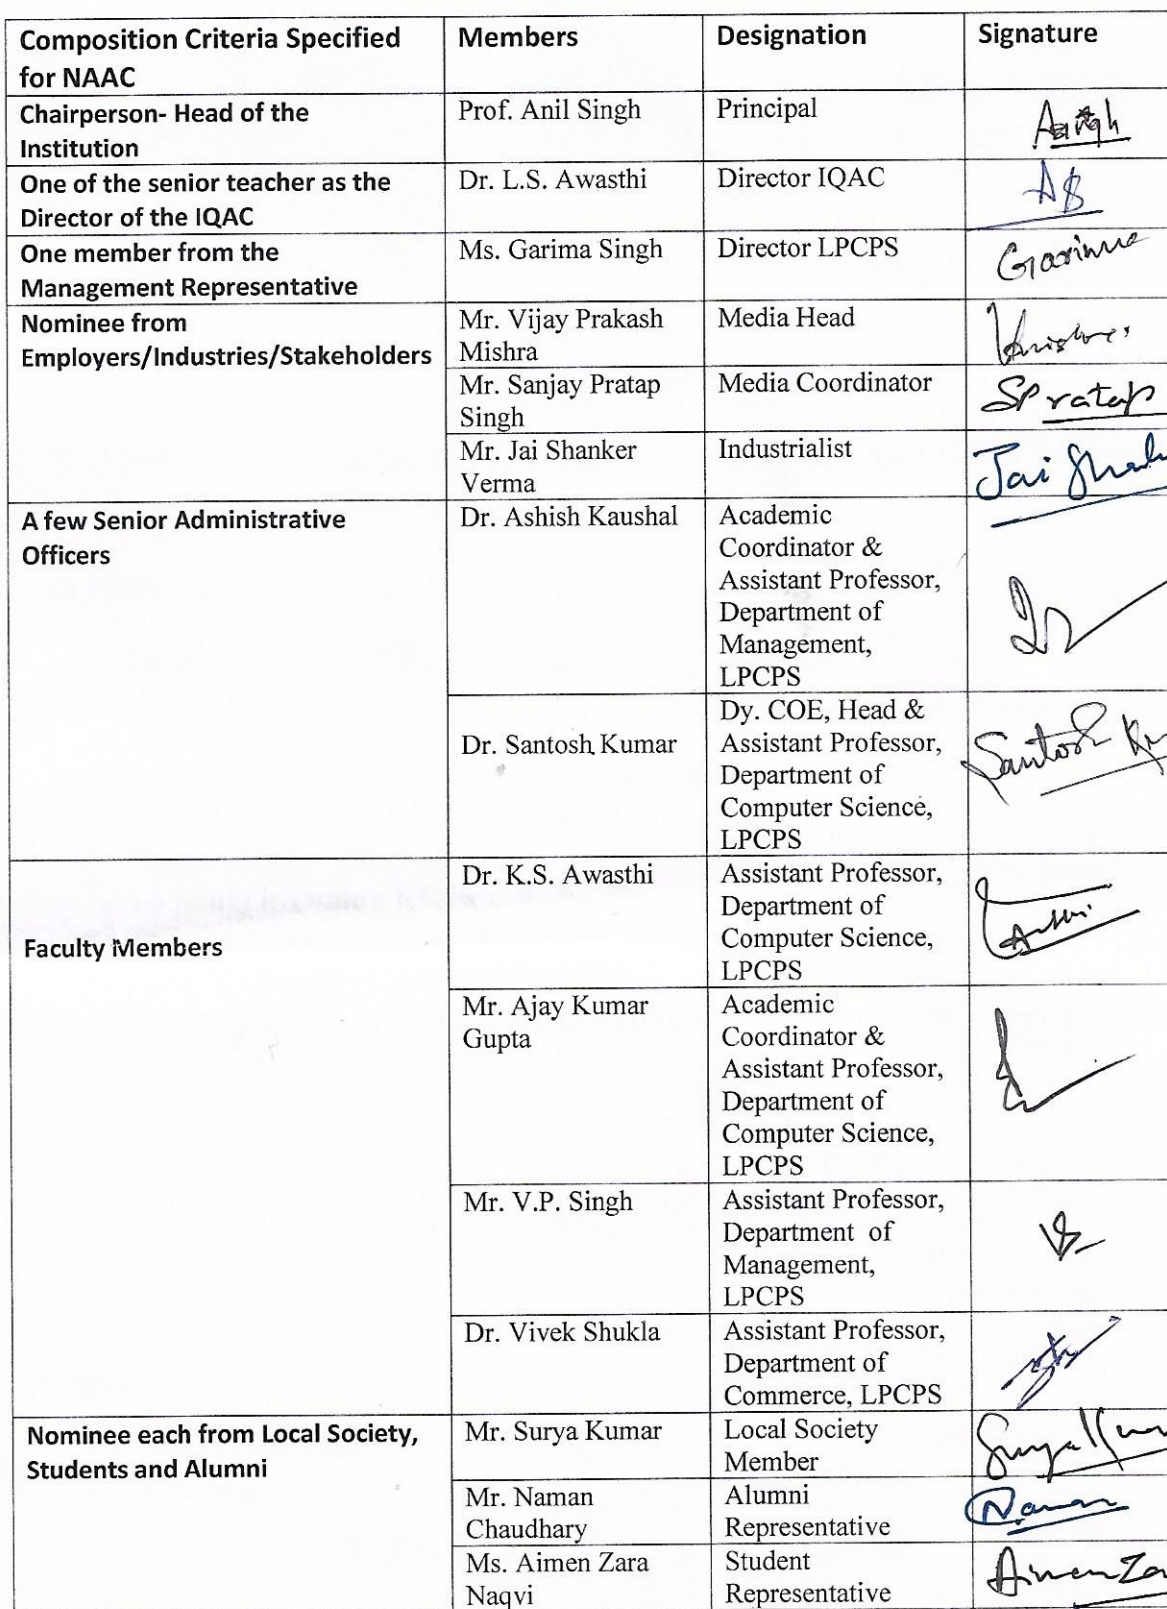 Composition Criteria Specified
for NAAC
Members
Designation
Signature
Chairperson- Head of the
Institution
Prof. Anil Singh
Principal
One of the senior teacher as the
Director of the IQAC
Dr. L.S. Awasthi
Director IQAC
One member from the
Management Representative
Ms. Garima Singh
Director LPCPS
Garima
Nominee from
Employers/Industries/Stakeholders
Mr. Vijay Prakash
Mishra
Media Head
Mr. Sanjay Pratap
Singh
Media Coordinator
SPratap
Mr. Jai Shanker
Verma
Industrialist
Jai
A few Senior Administrative
Officers
Dr. Ashish Kaushal
Academic
Coordinator &
Assistant Professor,
Department of
Management,
LPCPS
Dr. Santosh Kumar
Dy. COE, Head &
Assistant Professor,
Department of
Computer Science,
LPCPS
Santosh
Faculty Members
Dr. K.S. Awasthi
Assistant Professor,
Department of
Computer Science,
LPCPS
Mr. Ajay Kumar
Gupta
Academic
Coordinator &
Assistant Professor,
Department of
Computer Science,
LPCPS
Mr. V.P. Singh
Assistant Professor,
Department of
Management,
LPCPS
Dr. Vivek Shukla
Assistant Professor,
Department of
Commerce, LPCPS
Nominee each from Local Society,
Students and Alumni
Mr. Surya Kumar
Local Society
Member
Mr. Naman
Chaudhary
Alumni
Representative
Naman
Ms. Aimen Zara
Naqvi
Student
Representative
Aimen